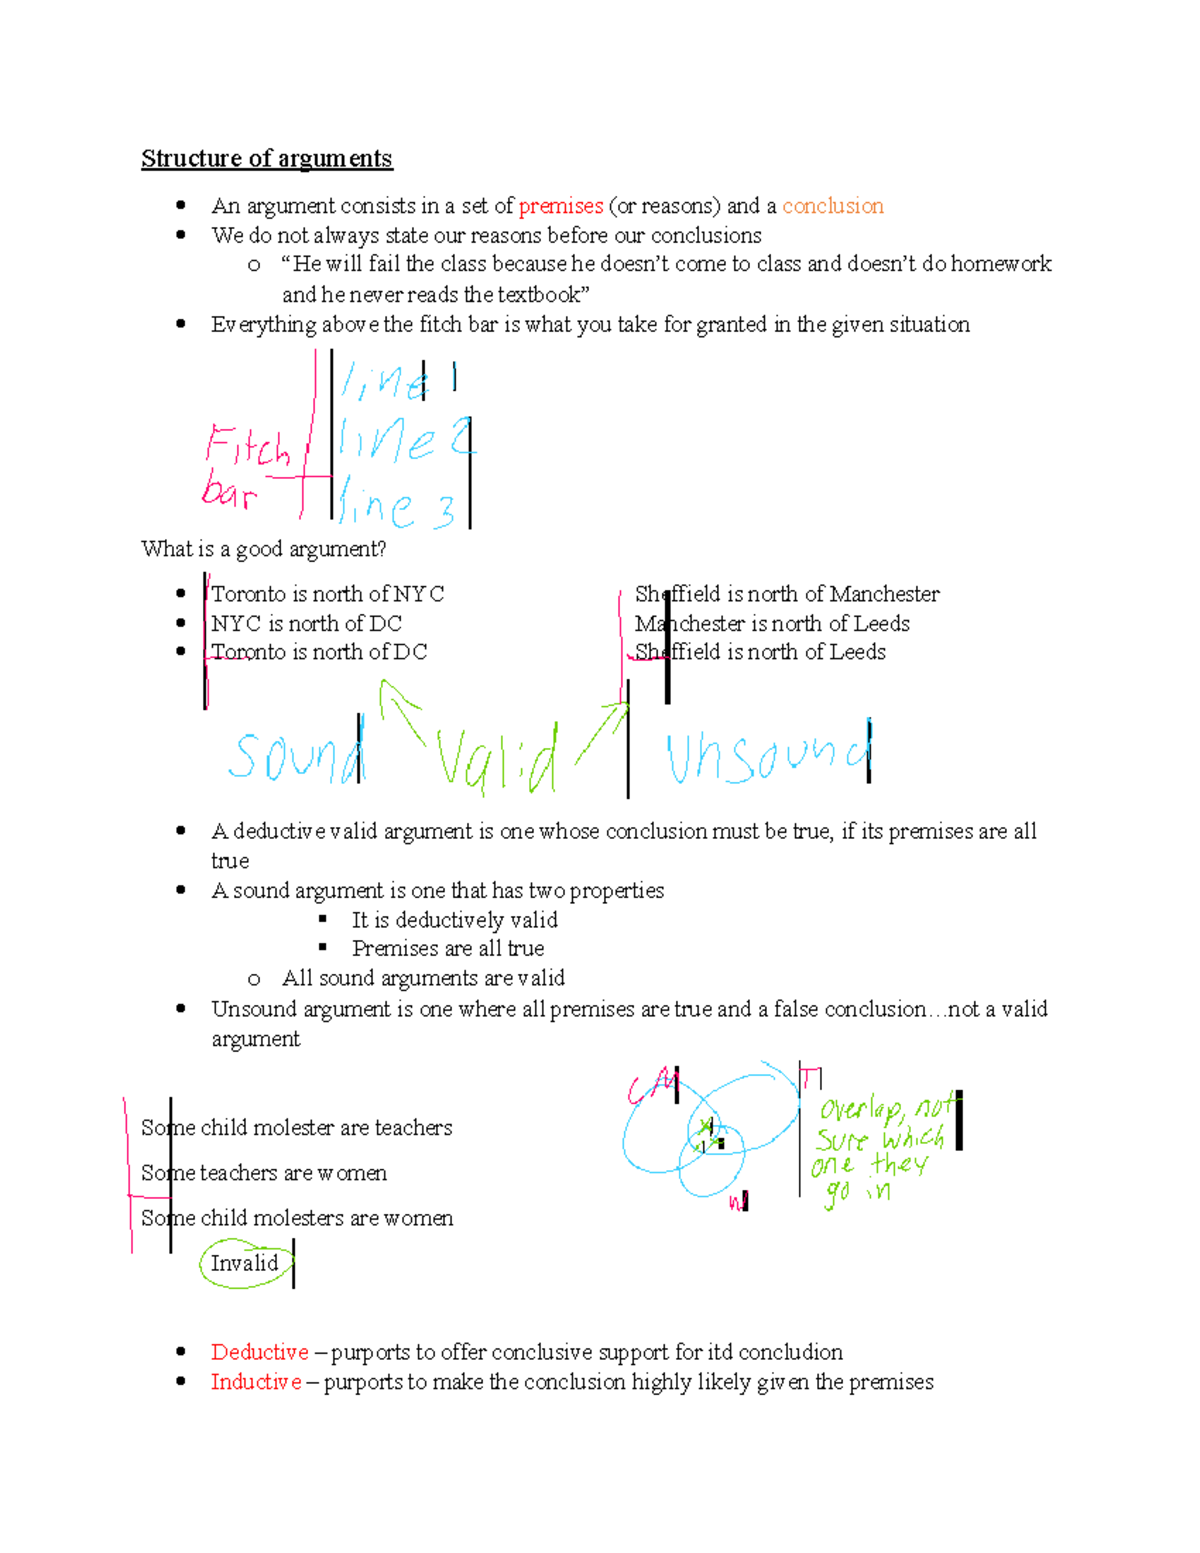 Structure of arguments
• An argument consists in a set of premises (or reasons) and a conclusion
• We do not always state our reasons before our conclusions
o “He will fail the class because he doesn’t come to class and doesn’t do homework
and he never reads the textbook”
• Everything above the fitch bar is what you take for granted in the given situation
line 1
line 2
Fitch
bar
line 3
What is a good argument?
• Toronto is north of NYC Sheffield is north of Manchester
• NYC is north of DC Manchester is north of Leeds
• Toronto is north of DC Sheffield is north of Leeds
Sound Valid unsound
• A deductive valid argument is one whose conclusion must be true, if its premises are all
true
• A sound argument is one that has two properties
▪ It is deductively valid
▪ Premises are all true
o All sound arguments are valid
• Unsound argument is one where all premises are true and a false conclusion…not a valid
argument
CM T
overlap, not
sure which
one they
go in
W
Some child molester are teachers
Some teachers are women
Some child molesters are women
Invalid
• Deductive – purports to offer conclusive support for itd concludion
• Inductive – purports to make the conclusion highly likely given the premises